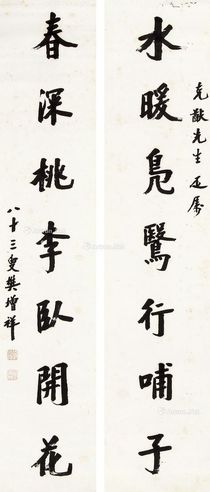 克猷先生正屬
水暖鳧鷖行哺子
春深桃李臥開花
八十三叟樊增祥